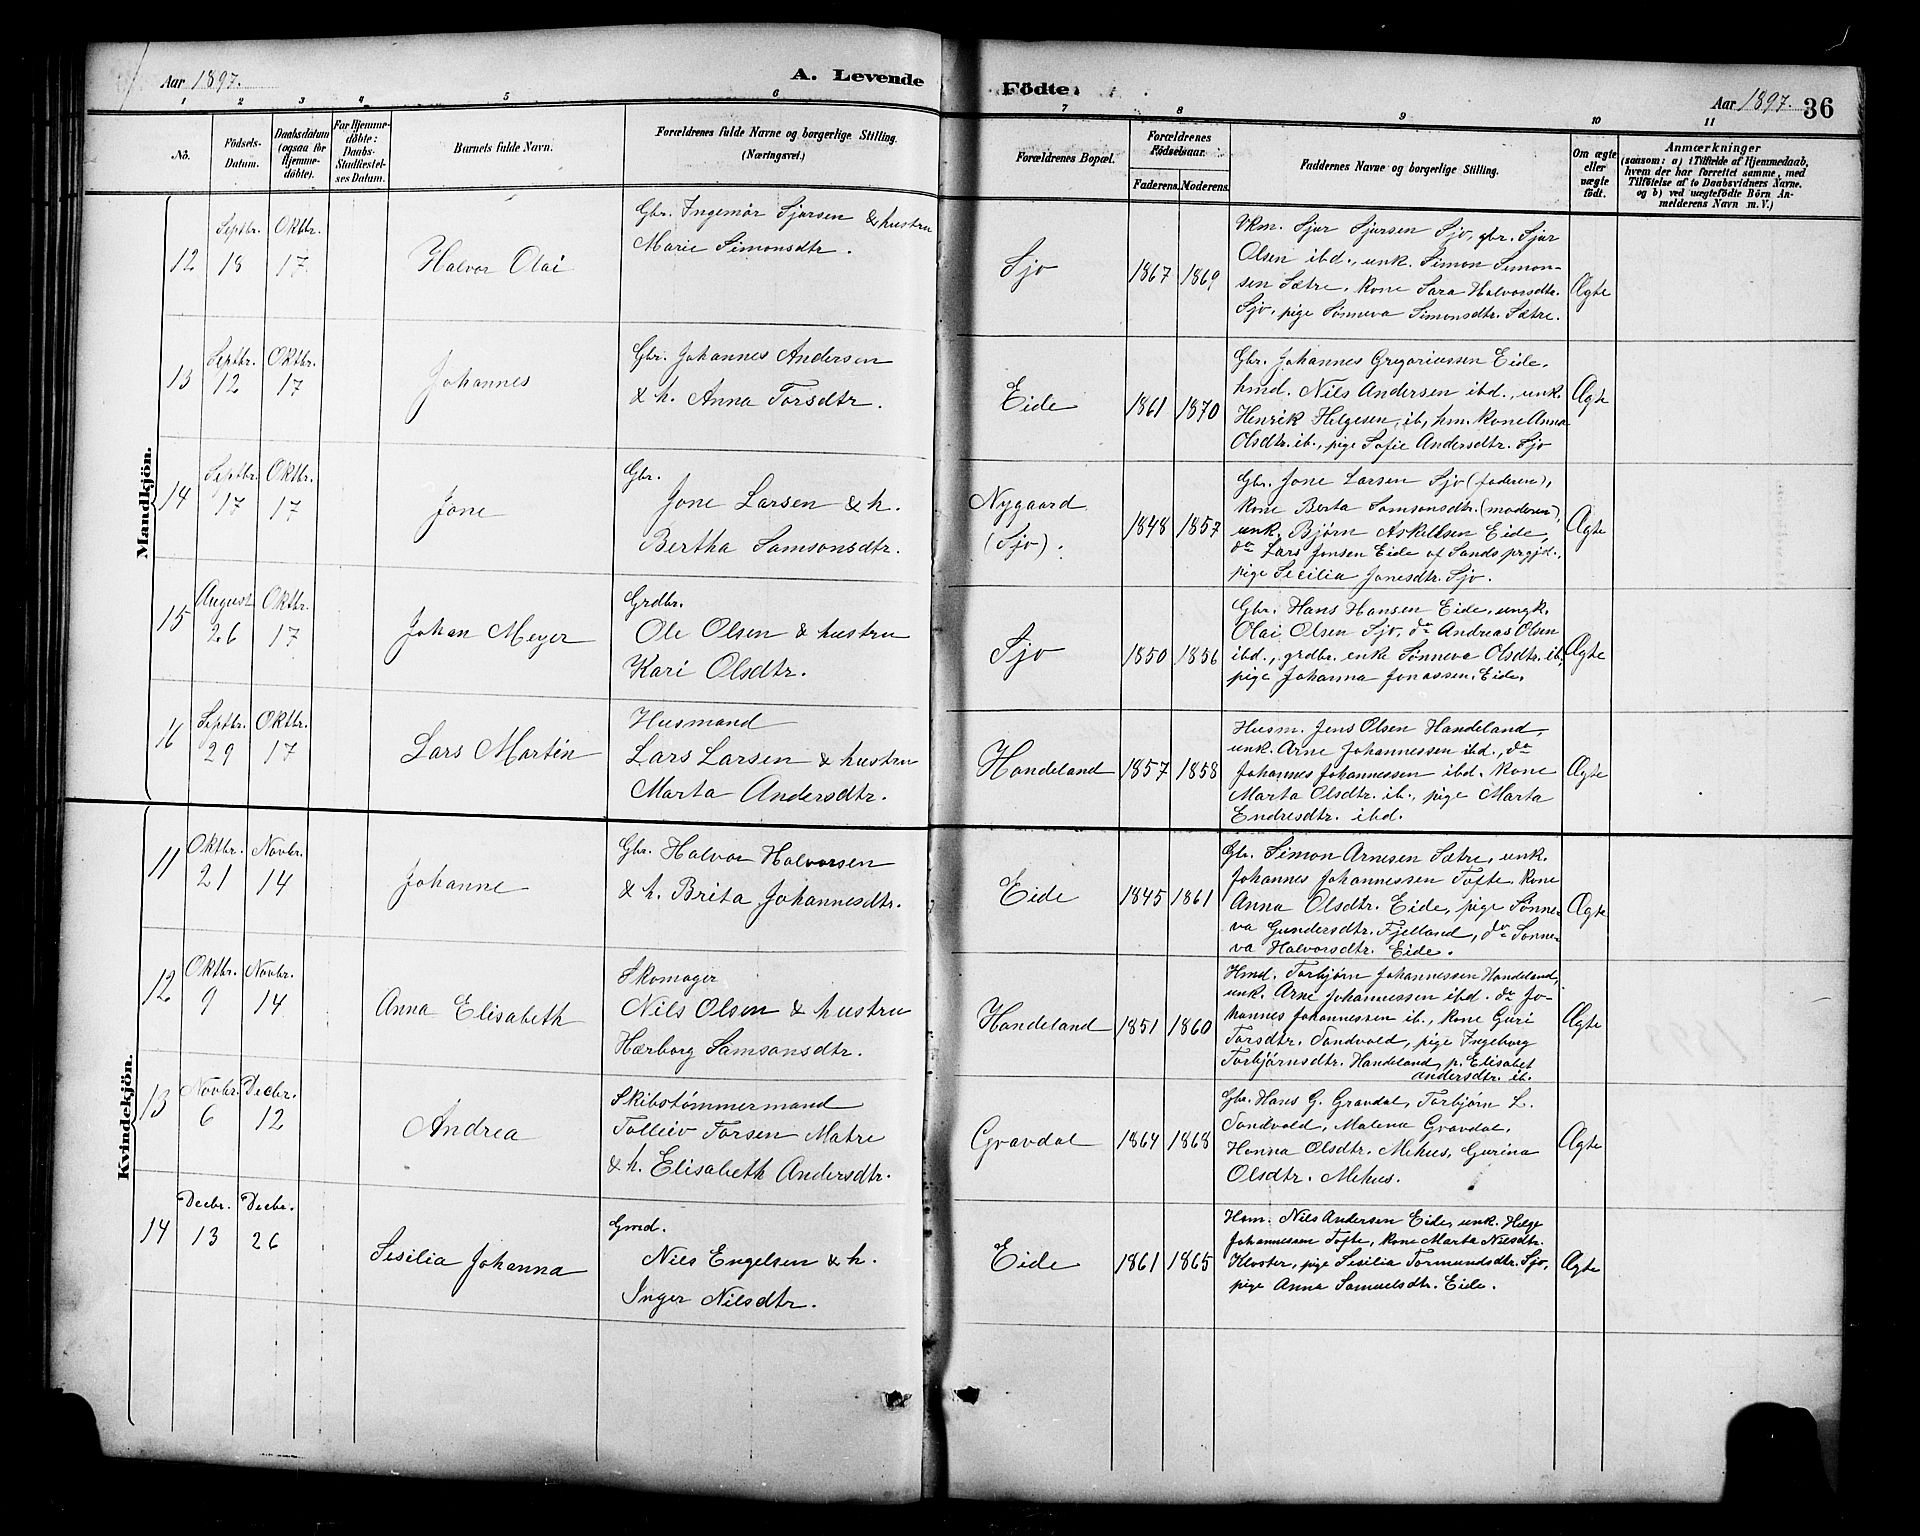 Aar 1897.
A. Levende
1 2 3 4 5 6
Nö.
Födsels-Datum.
Daabsdatum (ogsaa for Hjemme-döbte).
For Hjemme-döbte: Daabs-Stadfæstel-ses Datum.
Barnets fulde Navn.
Forældrenes fulde Navne og borgerlige Stilling.
(Næringsvei.)
Mandkjön.
12 Septbr. 18 Oktbr. 17 Halvor Olai
Gbr. Ingemor Sjursen & hustru
Marie Simonsdtr.
13 Septbr. 12 Oktbr. 17 Johannes
Gbr. Johannes Andersen
& h. Anna Torsdtr.
14 Septbr. 17 Oktbr. 17 Jone
Gbr.
Jone Larsen & h.
Bertha Samsonsdtr.
15 August 26 Oktbr. 17 Johan Meyer
Grdbr.
Ole Olsen & hustru
Kari Olsdtr.
16 Septbr. 29 Oktbr. 17 Lars Martin
Husmand
Lars Larsen & hustru
Marta Andersdtr.
Kvindekjön.
11 Oktbr. 21 Novbr. 14 Johanne
Gbr. Halvor Halvorsen
& h. Brita Johannesdtr.
12 Oktbr. 9 Novbr. 14 Anna Elisabeth
Skomager
Nils Olsen & hustru
Hærborg Samsonsdtr.
13 Novbr. 6 Decbr. 12 Andrea
Skibstømmermand
Tolleiv Torsen Matre
& h. Elisabeth Andersdtr.
14 Decbr. 13 Decbr. 26 Sesilia Johanna
Gmd.
Nils Engelsen & h.
Inger Nilsdtr.
Födte.
Aar 1897. 36
7 8 9 10 11
Forældrenes Bopæl.
Forældrenes Födselsaar.
Faderens. Moderens.
Faddernes Navne og borgerlige Stilling.
Om ægte eller uægte födt.
Anmærkninger
(saasom: a) i Tilfælde af Hjemmedaab,
hvem der har forrettet samme, med
Tilföielse af to Daabsvidners Navne.
og b) ved uægtefödte Börn An-
melderens Navn m. V.)
Sjo 1867 1869
Vkm. Sjur Sjursen Sjo, gbr. Sjur
Olsen ibd., unk. Simon Simon-
sen Sætre, kone Sara Halvorsdtr.
Sjo, pige Sønneva Simonsdtr. Sætre.
Ægte
Eide 1861 1870
Gbr. Johannes Gregoriussen Eide,
hmd. Nils Andersen ibd., unk.
Henrik Helgesen, ib, hm. kone Anna
Olsdtr. ib., pige Sofie Andersdtr. Sjo
Ægte
Nygaard
(Sjo). 1848 1857
Gbr. Jone Larsen Sjo (faderen),
kone Berta Samsonsdtr. (moderen),
unk. Bjørn Askellsen Eide,
do Lars Jonsen Eide af Sands prgjd.,
pige Secilia Jonesdtr. Sjo.
Ægte
Sjo 1850 1856
Gbr. Hans Hansen Eide, ungk.
Olai Olsen Sjo, do Andreas Olsen
ibd., grdbr. enke Sønneva Olsdtr. ib,
pige Johanna Jonassen, Eide.
Ægte
Handeland 1857 1858
Husm. Jens Olsen Handeland,
unk. Arne Johannessen ibd., do
Johannes Johannessen ibd. kone
Marta Olsdtr. ib., pige Marta
Endresdtr. ibd.
Ægte
Eide 1845 1861
Gbr. Simon Arnesen Sætre, unk.
Johannes Johannessen Tofte, kone
Anna Olsdtr. Eide, pige Sønne-
va Gundersdtr. Fjelland, do Sønne-
va Halvorsdtr. Eide.
Ægte
Handeland 1851 1860
Hmd. Torbjørn Johannessen Handeland,
unk. Arne Johannessen ibd. do Jo-
hannes Johannessen ib., kone Guri
Torsdtr. Tondvold, pige Ingeborg
Torbjørnsdtr. Handeland, p. Elisabet
Andersdtr. ib.
Ægte
Gravdal 1864 1868
Gbr. Hans G. Gravdal, Torbjørn L.
Tondvold, Malena Gravdal,
Hanna Olsdtr. Mehus, Gurina
Olsdtr. Mehus.
Ægte
Eide 1861 1865
Hsm. Nils Andersen Eide, unk. Helge
Johannessen Tofte, kone Marta Nilsdtr.
Kloster, pige Sesilia Tormundsdtr. Sjo,
pige Anna Samuelsdtr. Eide.
Ægte